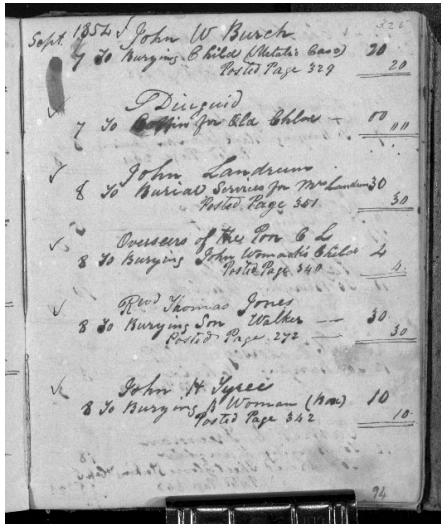 Sept. 1854 John W Burch
7 To Burying Child (Metalic Case) 20
Posted Page 329 20
Diuguid
7 To Coffin for Old Chloe 00
" "
John Landrum
8 To Burial Services for Mrs Landrum 30
Posted Page 301 30
Overseers of the Poor C L
8 To Burying John Womack's Child 4
Posted Page 340 4
Revd Thomas Jones
8 To Burying Son Walker 30
Posted Page 272 30
John H Tyree
8 To Burying A Woman (Box) 10
Posted Page 342 10
94